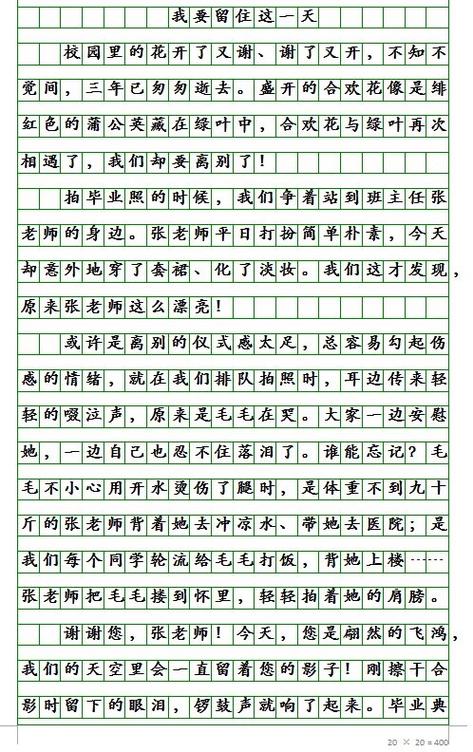 我要留住这一天
校园里的花开了又谢、谢了又开，不知不
觉间，三年已匆匆逝去。盛开的合欢花像是绯
红色的蒲公英藏在绿叶中，合欢花与绿叶再次
相遇了，我们却要离别了！
拍毕业照的时候，我们争着站到班主任张
老师的身边。张老师平日打扮简单朴素，今天
却意外地穿了套裙、化了淡妆。我们这才发现，
原来张老师这么漂亮！
或许是离别的仪式感太足，总容易勾起伤
感的情绪，就在我们排队拍照时，耳边传来轻
轻的啜泣声，原来是毛毛在哭。大家一边安慰
她，一边自己也忍不住落泪了。谁能忘记？毛
毛不小心用开水烫伤了腿时，是体重不到九十
斤的张老师背着她去冲凉水、带她去医院；是
我们每个同学轮流给毛毛打饭，背她上楼……
张老师把毛毛搂到怀里，轻轻拍着她的肩膀。
谢谢您，张老师！今天，您是翩然的飞鸿，
我们的天空里会一直留着您的影子！刚擦干合
影时留下的眼泪，锣鼓声就响了起来。毕业典
20 × 20 = 400